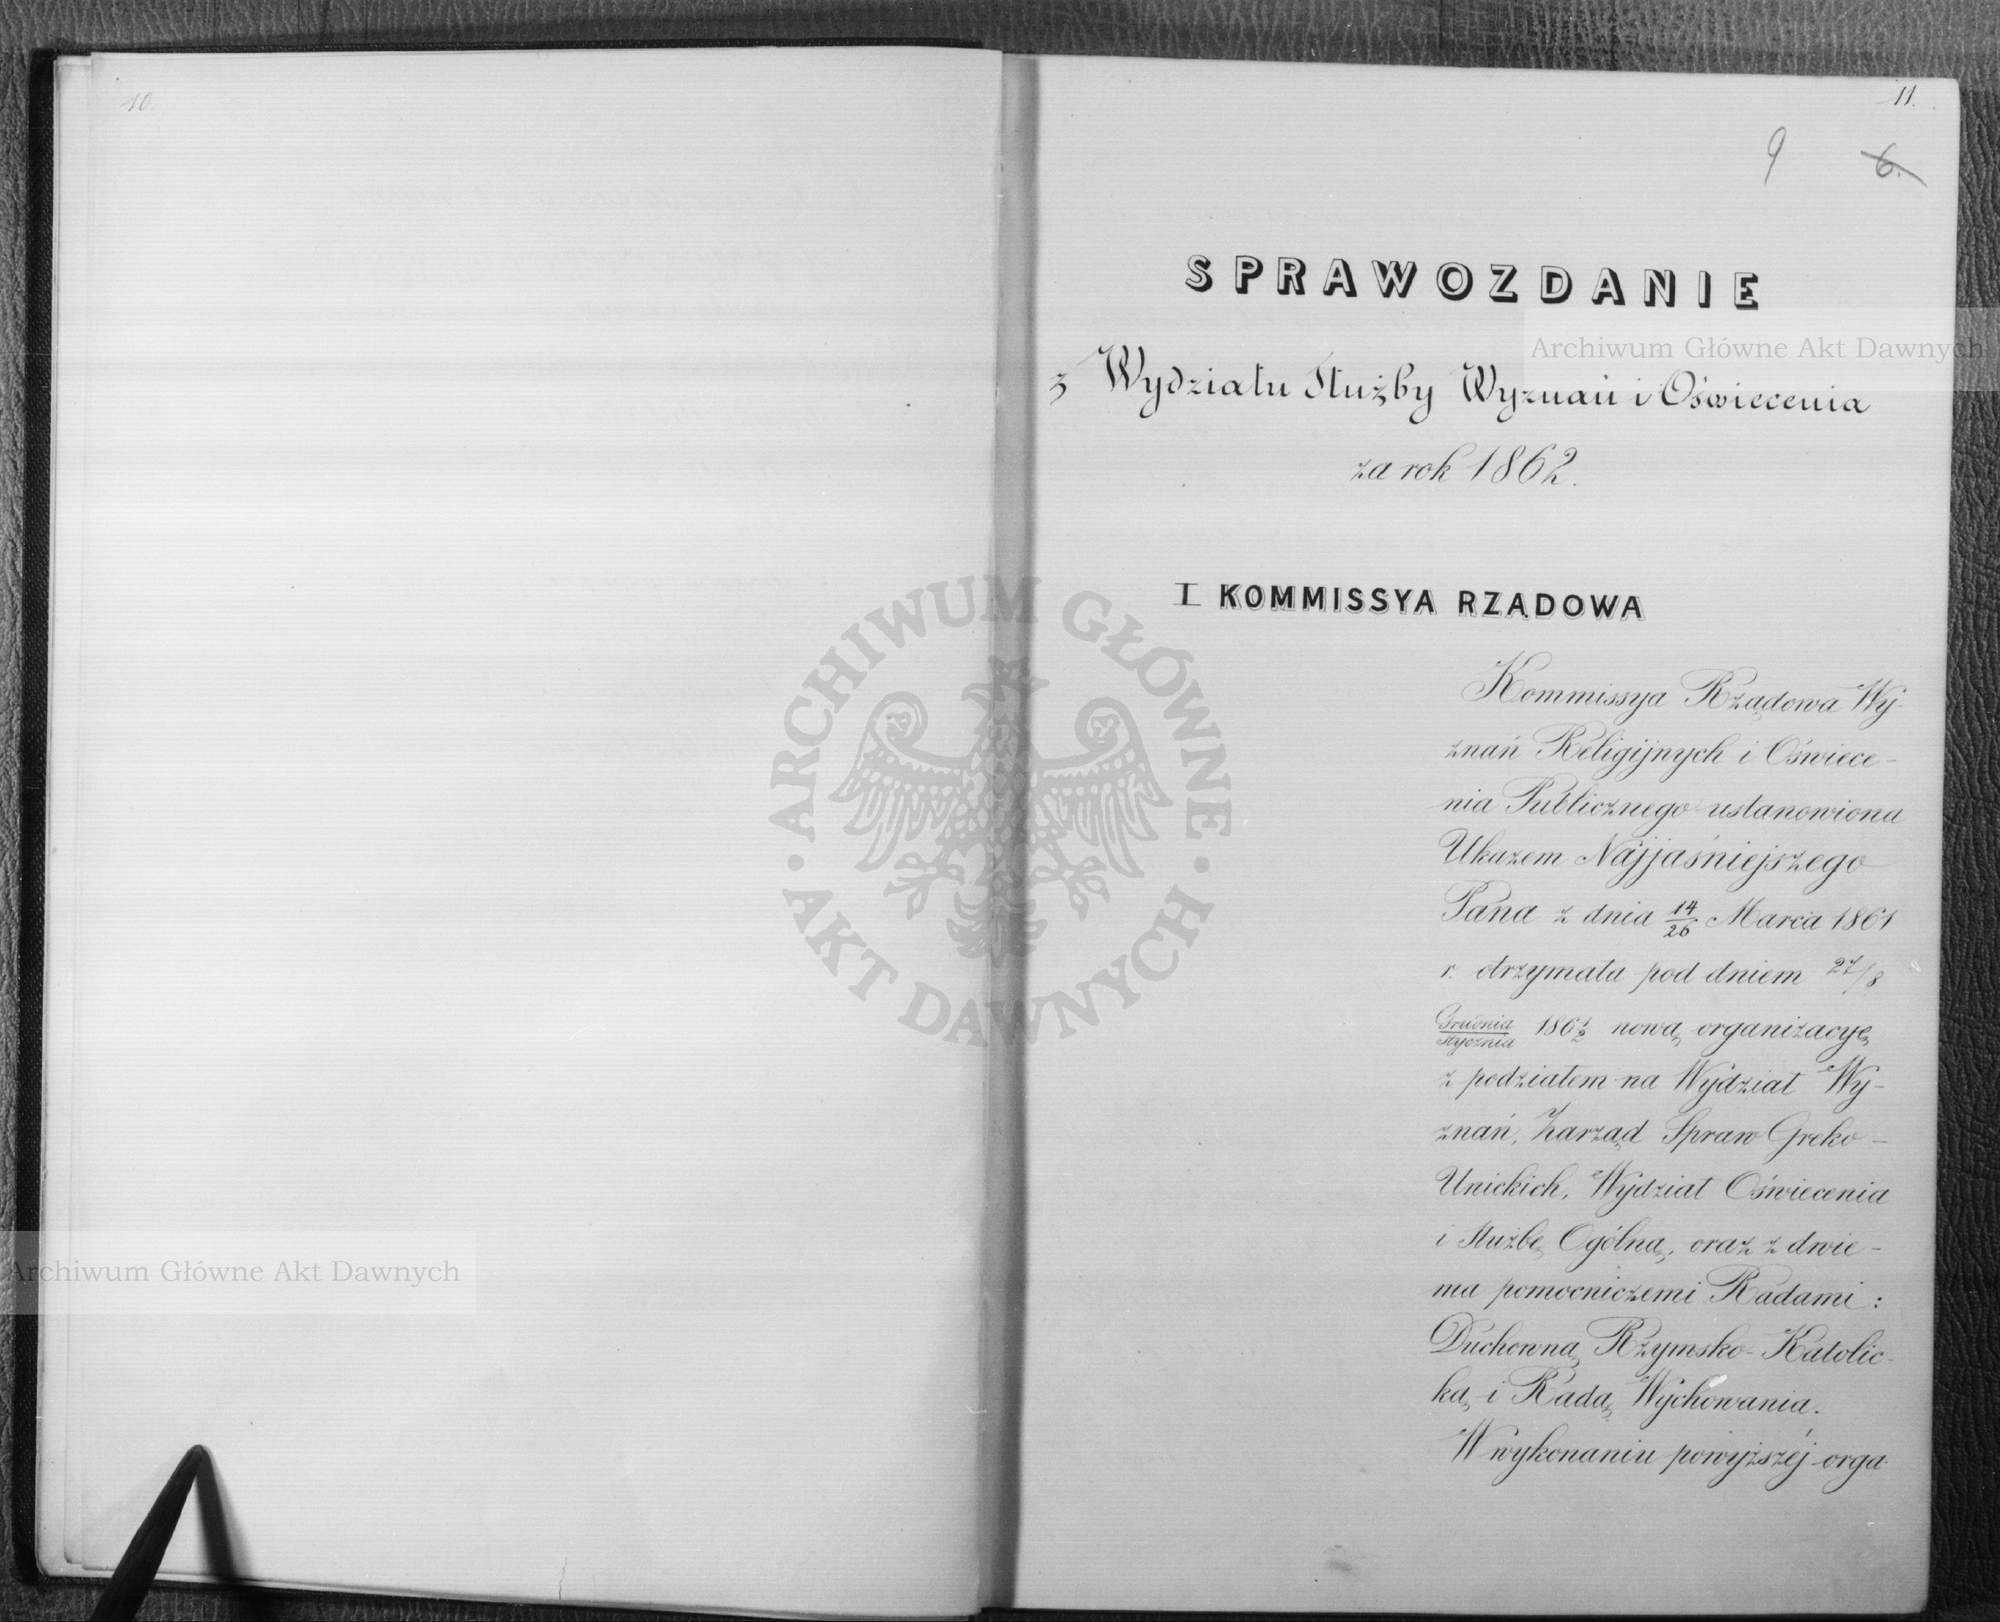 10.
11.
9 6.
SPRAWOZDANIE
z Wydziału Służby Wyznań i Oświecenia
za rok 1862.
I KOMMISSYA RZĄDOWA
Kommissya Rządowa Wy-
znań Religijnych i Oświece-
nia Publicznego ustanowiona
Ukazem Najjaśniejszego
Pana z dnia 14/26 Marca 1861
r. otrzymała pod dniem 27/8
Grudnia/Stycznia 1861/2 nową organizacyę
z podziałem na Wydział Wy-
znań, Zarząd Spraw Greko-
Unickich, Wydział Oświecenia
i Służbę Ogólną, oraz z dwie-
ma pomocniczemi Radami:
Duchowną Rzymsko-Katolic-
ką i Radą Wychowania.
W wykonaniu powyższéj orga-
Archiwum Główne Akt Dawnych
Archiwum Główne Akt Dawnych
· ARCHIWUM GŁÓWNE · AKT DAWNYCH